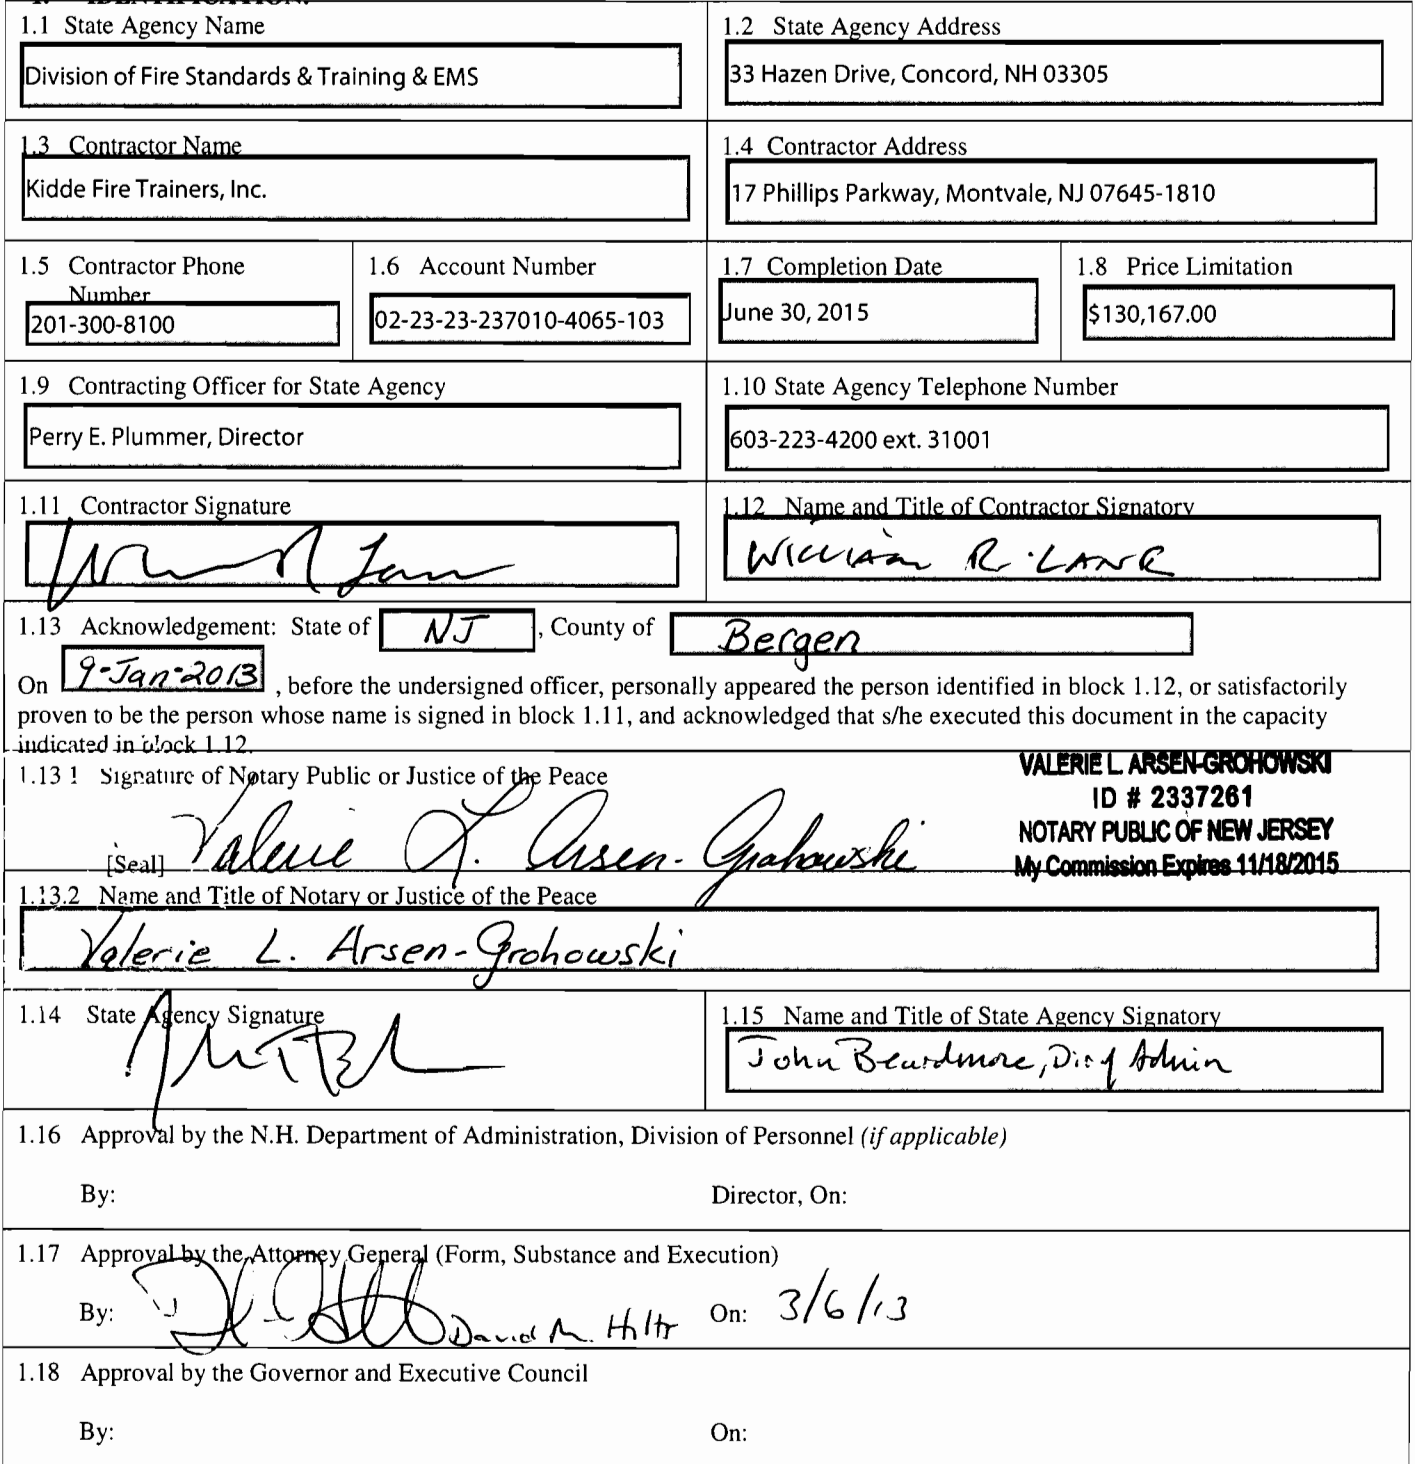 1. IDENTIFICATION.
1.1 State Agency Name
Division of Fire Standards & Training & EMS
1.2 State Agency Address
33 Hazen Drive, Concord, NH 03305
1.3 Contractor Name
Kidde Fire Trainers, Inc.
1.4 Contractor Address
17 Phillips Parkway, Montvale, NJ 07645-1810
1.5 Contractor Phone
Number
201-300-8100
1.6 Account Number
02-23-23-237010-4065-103
1.7 Completion Date
June 30, 2015
1.8 Price Limitation
$130,167.00
1.9 Contracting Officer for State Agency
Perry E. Plummer, Director
1.10 State Agency Telephone Number
603-223-4200 ext. 31001
1.11 Contractor Signature
1.12 Name and Title of Contractor Signatory
WILLIAM R. LANE
1.13 Acknowledgement: State of NJ, County of Bergen
On 9-Jan-2013, before the undersigned officer, personally appeared the person identified in block 1.12, or satisfactorily
proven to be the person whose name is signed in block 1.11, and acknowledged that s/he executed this document in the capacity
indicated in block 1.12.
1.13 1 Signature of Notary Public or Justice of the Peace
Valerie L. Arsen-Grohowski
[Seal]
VALERIE L. ARSEN-GROHOWSKI
ID # 2337261
NOTARY PUBLIC OF NEW JERSEY
My Commission Expires 11/18/2015
1.13.2 Name and Title of Notary or Justice of the Peace
Valerie L. Arsen-Grohowski
1.14 State Agency Signature
1.15 Name and Title of State Agency Signatory
John Beardmore, Dir of Admin
1.16 Approval by the N.H. Department of Administration, Division of Personnel (if applicable)
By:
Director, On:
1.17 Approval by the Attorney General (Form, Substance and Execution)
By: David M. On: 3/6/13
1.18 Approval by the Governor and Executive Council
By:
On: